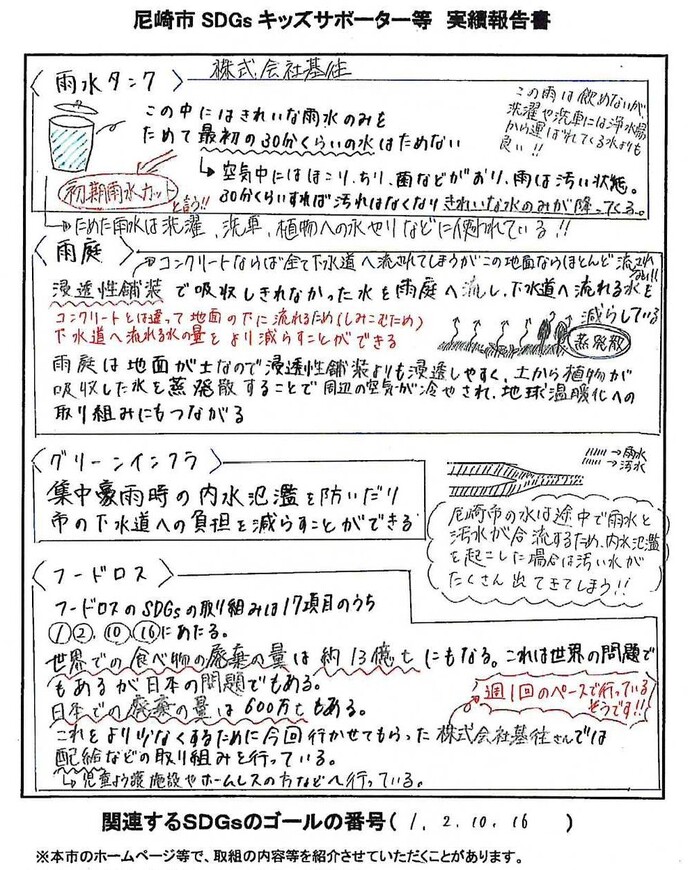 尼崎市 SDGs キッズサポーター等　実績報告書
株式会社基徒
〈雨水タンク〉
この雨は飲めないが、
洗濯や洗車には浄水場
から運ばれている水よりも
良い!!
この中にはきれいな雨水のみを
ためて最初の30分くらいの水はためない
↳空気中にはほこり、ちり、菌などがおり、雨は汚い状態。
30分くらいすれば汚れはなくなりきれいな水のみが降ってくる。
初期雨水カットと言う!!
ためた雨水は洗濯、洗車、植物への水やりなどに使われている!!
〈雨庭〉
コンクリートならば全て下水道へ流されてしまうがこの地面ならほとんど流されない!!
浸透性舗装で吸収しきれなかった水を雨庭へ流し、下水道へ流れる水を
減らしている
コンクリートとは違って地面の下に流れるため(しみこむため)
下水道へ流れる水の量をより減らすことができる
蒸発散
雨庭は地面が土なので浸透性舗装よりも浸透しやすく、土から植物が
吸収した水を蒸発散することで周辺の空気が冷やされ、地球温暖化への
取り組みにもつながる
〈グリーンインフラ〉
集中豪雨時の内水氾濫を防いだり
市の下水道への負担を減らすことができる
→雨水
→汚水
尼崎市の水は途中で雨水と
汚水が合流するため、内水氾濫
を起こした場合は汚い水が
たくさん出てきてしまう!!
〈フードロス〉
フードロスのSDGsの取り組みは17項目のうち
①②⑩⑯にあたる。
世界での食べ物の廃棄の量は約13億tにもなる。これは世界の問題で
もあるが日本の問題でもある。
日本での廃棄の量は600万tもある。
週1回のペースで行っている
そうです!!
これをより少なくするために今回行かせてもらった株式会社基徒さんでは
配給などの取り組みを行っている。
↳児童よう護施設やホームレスの方などへ行っている。
関連するSDGsのゴールの番号( 1. 2. 10. 16 )
※本市のホームページ等で、取組の内容等を紹介させていただくことがあります。